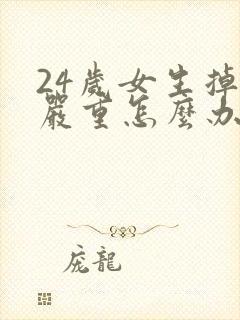 24歲女生掉
嚴重怎麼办
庞龍